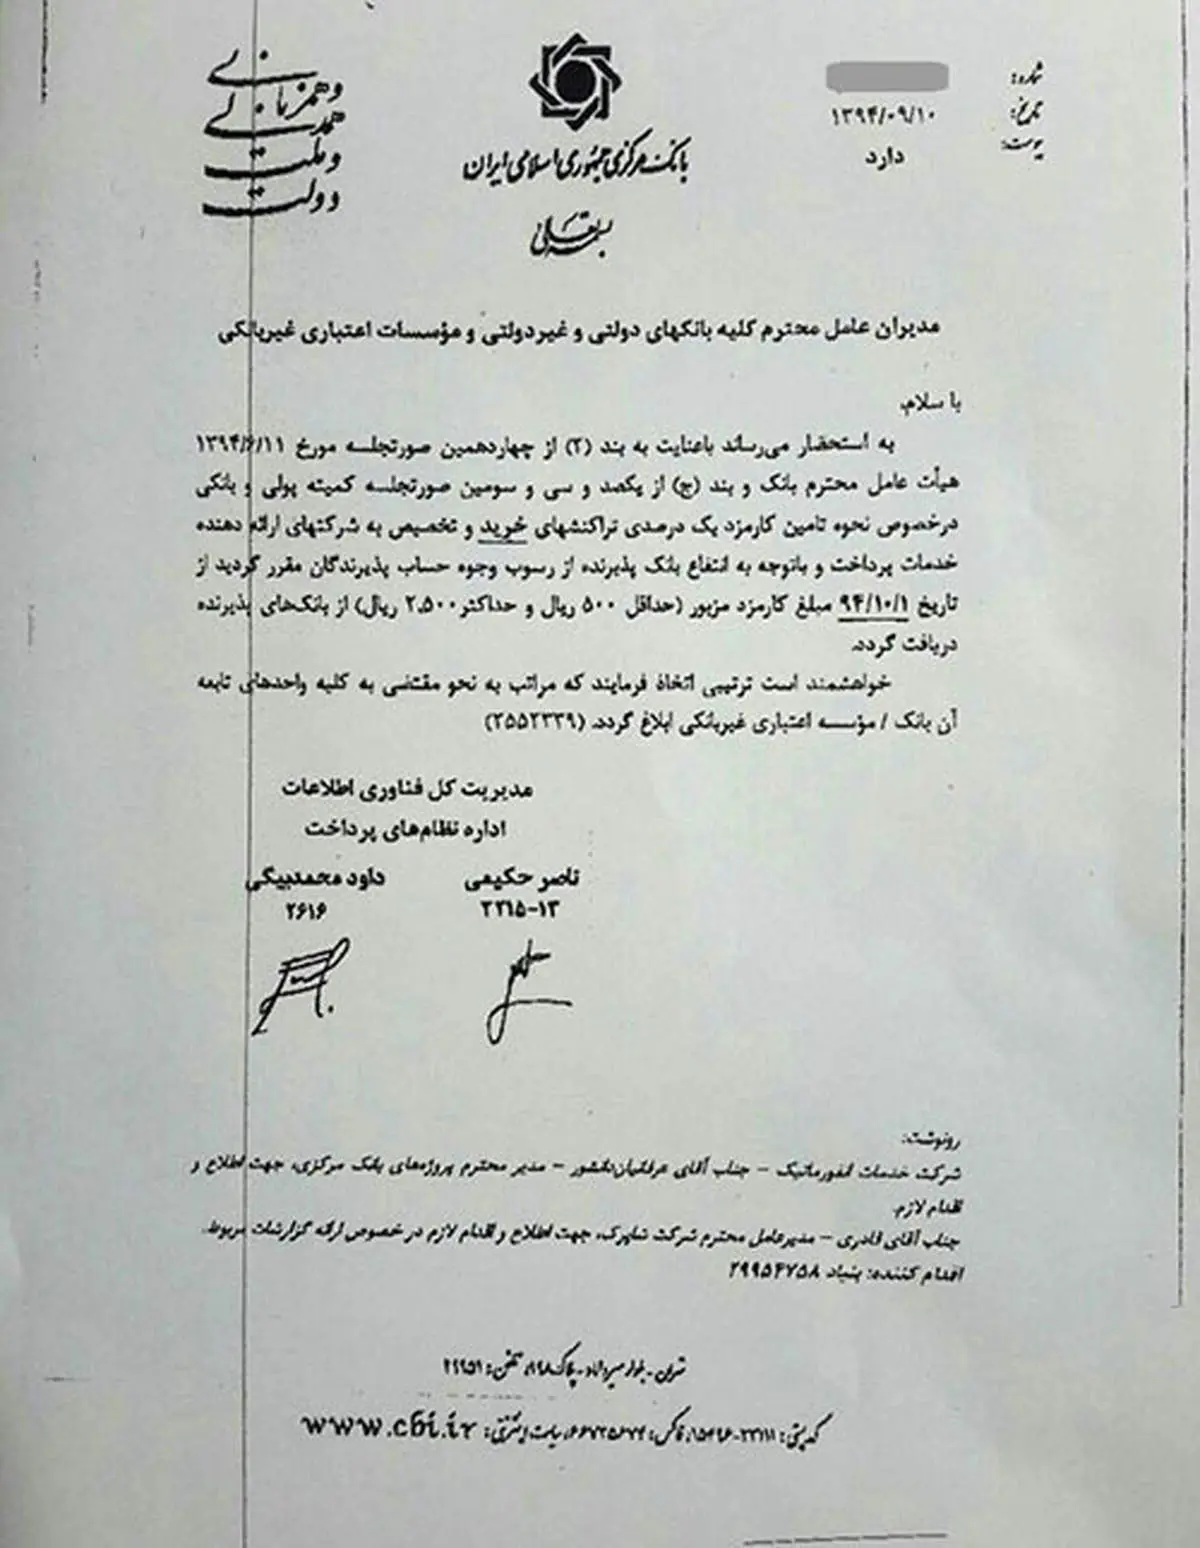 شماره:
تاریخ: ۱۳۹۴/۰۹/۱۰
پیوست: دارد
بانک مرکزی جمهوری اسلامی ایران
بسمه تعالی
دولت
و ملت
همدلی
و همزبانی
مدیران عامل محترم کلیه بانکهای دولتی و غیردولتی و مؤسسات اعتباری غیربانکی
با سلام؛
به استحضار می‌رساند باعنایت به بند (۲) از چهاردهمین صورتجلسه مورخ ۱۳۹۴/۶/۱۱
هیأت عامل محترم بانک و بند (ج) از یکصد و سی و سومین صورتجلسه کمیته پولی و بانکی
درخصوص نحوه تامین کارمزد یک درصدی تراکنشهای خرید و تخصیص به شرکتهای ارائه دهنده
خدمات پرداخت و باتوجه به انتفاع بانک پذیرنده از رسوب وجوه حساب پذیرندگان مقرر گردید از
تاریخ ۹۴/۱۰/۱ مبلغ کارمزد مزبور (حداقل ۵۰۰ ریال و حداکثر ۲.۵۰۰ ریال) از بانک‌های پذیرنده
دریافت گردد.
خواهشمند است ترتیبی اتخاذ فرمایند که مراتب به نحو مقتضی به کلیه واحدهای تابعه
آن بانک / مؤسسه اعتباری غیربانکی ابلاغ گردد. (۲۵۵۲۳۳۹)
مدیریت کل فناوری اطلاعات
اداره نظام‌های پرداخت
ناصر حکیمی داود محمدبیگی
۲۲۱۵-۱۳ ۲۶۱۶
رونوشت:
شرکت خدمات انفورماتیک – جناب آقای عرفانیان‌دانشور – مدیر محترم پروژه‌های بانک مرکزی، جهت اطلاع و
اقدام لازم.
جناب آقای قادری – مدیرعامل محترم شرکت شاپرک، جهت اطلاع و اقدام لازم در خصوص ارائه گزارشات مربوط.
اقدام کننده: بنیاد ۲۹۹۵۴۷۵۸
تهران - بلوار میرداماد - پلاک ۱۹۸، تلفن: ۲۹۹۵۱
کدپستی: ۳۳۱۱۱-۱۵۴۹۶، فاکس: ۶۶۷۳۵۶۷۴، سایت اینترنتی: www.cbi.ir